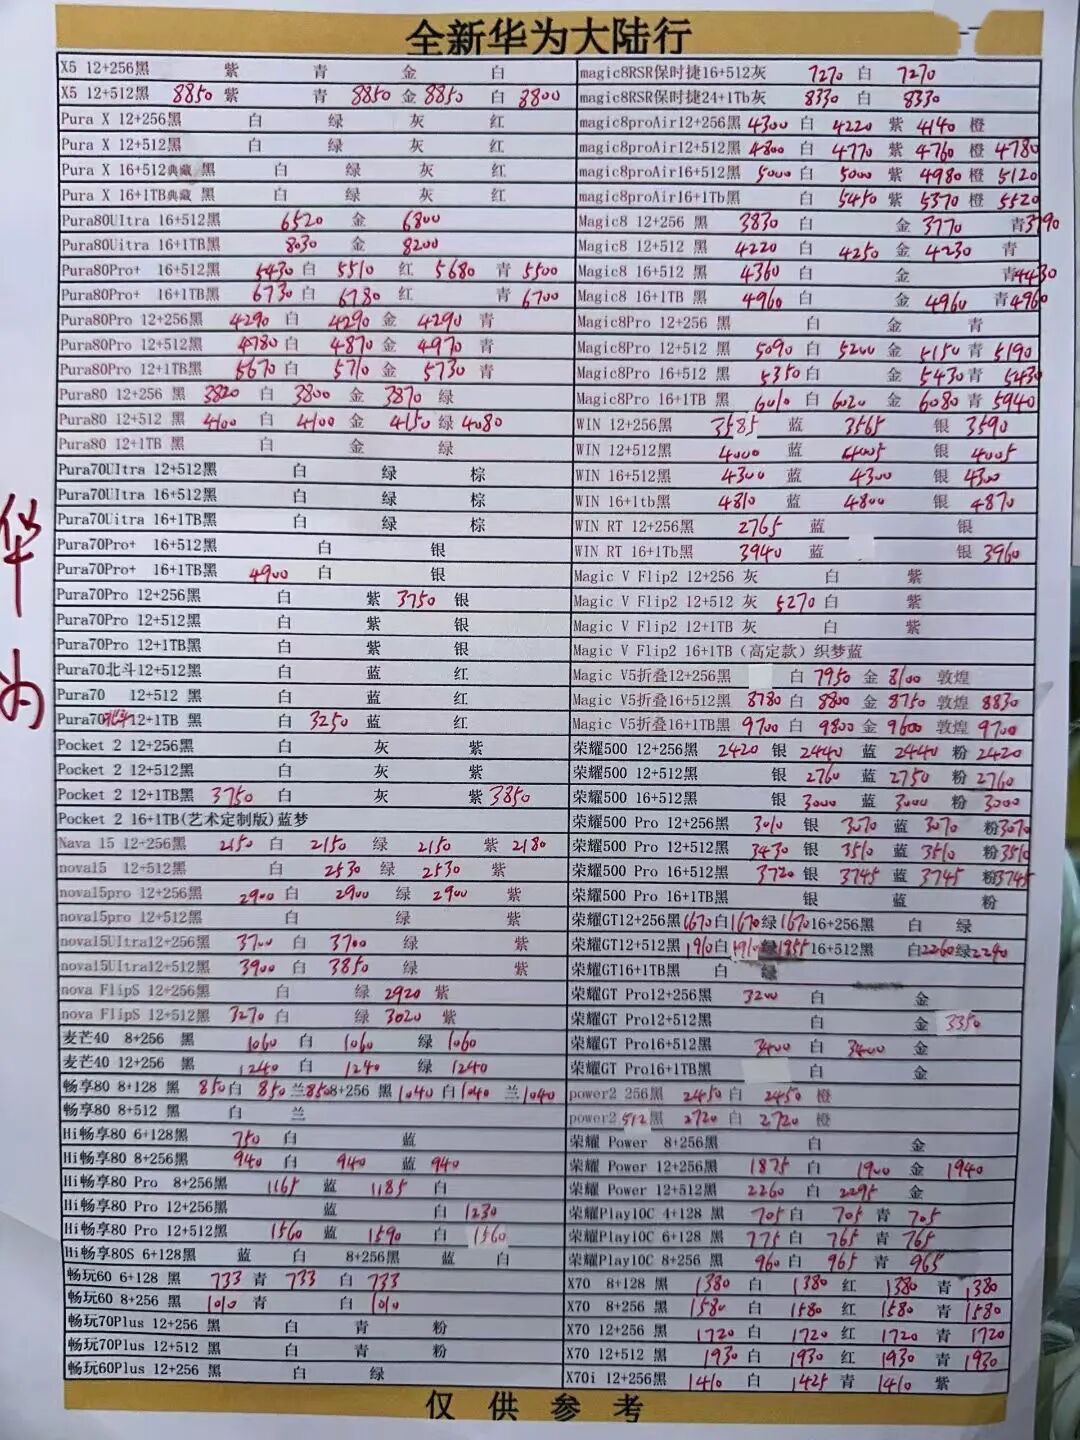 全新华为大陆行
华为
X5 12+256黑 紫 青 金 白
X5 12+512黑 8850 紫 青 8850 金 8850 白 8800
Pura X 12+256黑 白 绿 灰 红
Pura X 12+512黑 白 绿 灰 红
Pura X 16+512典藏 黑 白 绿 灰 红
Pura X 16+1TB典藏 黑 白 绿 灰 红
Pura80Ultra 16+512黑 6520 金 6800
Pura80Uitra 16+1TB黑 8030 金 8200
Pura80Pro+ 16+512黑 5430 白 5510 红 5680 青 5500
Pura80Pro+ 16+1TB黑 6730 白 6780 红 青 6700
Pura80Pro 12+256黑 4290 白 4290 金 4290 青
Pura80Pro 12+512黑 4780 白 4870 金 4970 青
Pura80Pro 12+1TB黑 5670 白 5710 金 5730 青
Pura80 12+256 黑 3820 白 3800 金 3870 绿
Pura80 12+512 黑 4100 白 4100 金 4150 绿 4080
Pura80 12+1TB 黑 白 金 绿
Pura70UItra 12+512黑 白 绿 棕
Pura70UItra 16+512黑 白 绿 棕
Pura70Uitra 16+1TB黑 白 绿 棕
Pura70Pro+ 16+512黑 白 银
Pura70Pro+ 16+1TB黑 4900 白 银
Pura70Pro 12+256黑 白 紫 3750 银
Pura70Pro 12+512黑 白 紫 银
Pura70Pro 12+1TB黑 白 紫 银
Pura70北斗12+512黑 白 蓝 红
Pura70 12+512 黑 白 蓝 红
Pura70北斗12+1TB 黑 白 3250 蓝 红
Pocket 2 12+256黑 白 灰 紫
Pocket 2 12+512黑 白 灰 紫
Pocket 2 12+1TB黑 3750 白 灰 紫 3850
Pocket 2 16+1TB(艺术定制版)蓝梦
Nava 15 12+256黑 2150 白 2150 绿 2150 紫 2180
nova15 12+512黑 白 2530 绿 2530 紫
nova15pro 12+256黑 2900 白 2900 绿 2900 紫
nova15pro 12+512黑 白 绿 紫
nova15UItra12+256黑 3700 白 3700 绿 紫
nova15UItra12+512黑 3900 白 3850 绿 紫
nova FlipS 12+256黑 白 绿 2920 紫
nova FlipS 12+512黑 3270 白 绿 3020 紫
麦芒40 8+256 黑 1060 白 1060 绿 1060
麦芒40 12+256 黑 1240 白 1240 绿 1240
畅享80 8+128 黑 850 白 850 兰 850 8+256 黑 1040 白 1040 兰 1040
畅享80 8+512 黑 白 兰
Hi畅享80 6+128黑 750 白 蓝
Hi畅享80 8+256黑 940 白 940 蓝 940
Hi畅享80 Pro 8+256黑 1165 蓝 1185 白
Hi畅享80 Pro 12+256黑 蓝 白 1230
Hi畅享80 Pro 12+512黑 1560 蓝 1590 白 1560
Hi畅享80S 6+128黑 蓝 白 8+256黑 蓝 白
畅玩60 6+128 黑 733 青 733 白 733
畅玩60 8+256 黑 1010 青 白 1010
畅玩70Plus 12+256 黑 白 青 粉
畅玩70Plus 12+512 黑 白 青 粉
畅玩60Plus 12+256 黑 白 绿
magic8RSR保时捷16+512灰 7270 白 7270
magic8RSR保时捷24+1Tb灰 8330 白 8330
magic8proAir12+256黑 4300 白 4220 紫 4140 橙
magic8proAir12+512黑 4800 白 4770 紫 4760 橙 4780
magic8proAir16+512黑 5000 白 5000 紫 4980 橙 5120
magic8proAir16+1Tb黑 白 5450 紫 5370 橙 5520
Magic8 12+256 黑 3830 白 金 3770 青 3790
Magic8 12+512 黑 4220 白 4250 金 4230 青
Magic8 16+512 黑 4360 白 金 青 4430
Magic8 16+1TB 黑 4960 白 金 4960 青 4960
Magic8Pro 12+256 黑 白 金 青
Magic8Pro 12+512 黑 5090 白 5200 金 5150 青 5190
Magic8Pro 16+512 黑 5350 白 金 5430 青 5430
Magic8Pro 16+1TB 黑 6010 白 6020 金 6080 青 5940
WIN 12+256黑 3585 蓝 3565 银 3590
WIN 12+512黑 4000 蓝 4005 银 4005
WIN 16+512黑 4300 蓝 4300 银 4300
WIN 16+1tb黑 4810 蓝 4800 银 4870
WIN RT 12+256黑 2765 蓝 银
WIN RT 16+1Tb黑 3940 蓝 银 3960
Magic V Flip2 12+256 灰 白 紫
Magic V Flip2 12+512 灰 5270 白 紫
Magic V Flip2 12+1TB 灰 白 紫
Magic V Flip2 16+1TB（高定款）织梦蓝
Magic V5折叠12+256黑 白 7950 金 8100 敦煌
Magic V5折叠16+512黑 8780 白 8800 金 8750 敦煌 8830
Magic V5折叠16+1TB黑 9700 白 9800 金 9600 敦煌 9700
荣耀500 12+256黑 2420 银 2440 蓝 2440 粉 2420
荣耀500 12+512黑 银 2760 蓝 2750 粉 2760
荣耀500 16+512黑 银 3000 蓝 3000 粉 3000
荣耀500 Pro 12+256黑 3010 银 3070 蓝 3070 粉 3070
荣耀500 Pro 12+512黑 3430 银 3510 蓝 3510 粉 3510
荣耀500 Pro 16+512黑 3720 银 3745 蓝 3745 粉 3745
荣耀500 Pro 16+1TB黑 银 蓝 粉
荣耀GT12+256黑 1670 白 1670 绿 1670 16+256黑 白 绿
荣耀GT12+512黑 1910 白 1910 绿 1955 16+512黑 白 2260 绿 2240
荣耀GT16+1TB黑 白 绿
荣耀GT Pro12+256黑 3200 白 金
荣耀GT Pro12+512黑 白 金 3350
荣耀GT Pro16+512黑 3400 白 3400 金
荣耀GT Pro16+1TB黑 白 金
power2 256黑 2450 白 2450 橙
power2 512黑 2720 白 2720 橙
荣耀 Power 8+256黑 白 金
荣耀 Power 12+256黑 1875 白 1900 金 1940
荣耀 Power 12+512黑 2260 白 2295 金
荣耀Play10C 4+128 黑 705 白 705 青 705
荣耀Play10C 6+128 黑 775 白 765 青 765
荣耀Play10C 8+256 黑 960 白 965 青 965
X70 8+128 黑 1380 白 1380 红 1380 青 1380
X70 8+256 黑 1580 白 1580 红 1580 青 1580
X70 12+256 黑 1720 白 1720 红 1720 青 1720
X70 12+512 黑 1930 白 1930 红 1930 青 1930
X70i 12+256黑 1410 白 1425 青 1410 紫
仅供参考